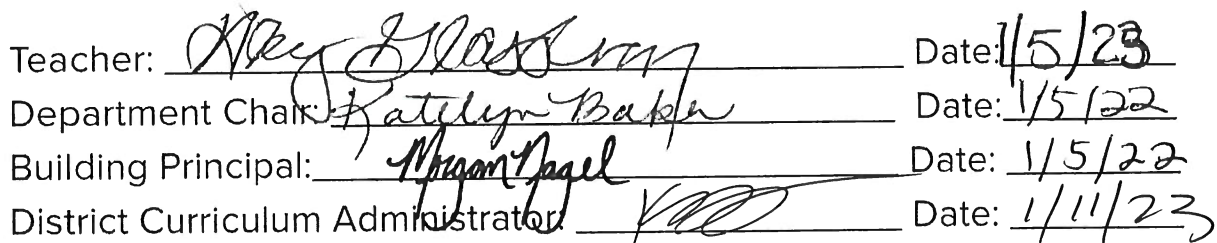 Teacher: Date: 1/5/23
Department Chair: Katelyn Baker Date: 1/5/22
Building Principal: Morgan Nagel Date: 1/5/22
District Curriculum Administrator: Date: 1/11/23